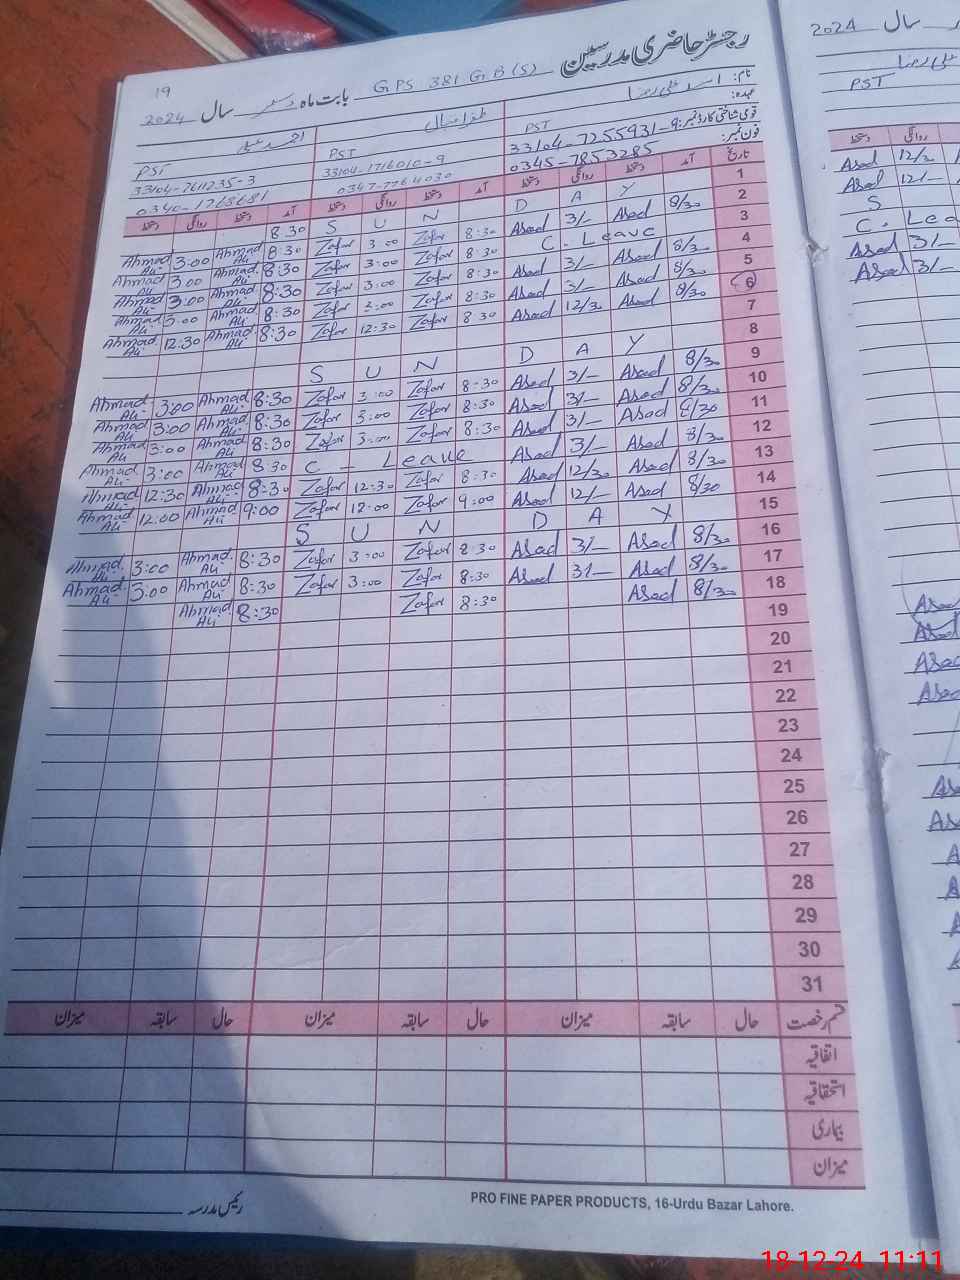 رجسٹر حاضری مدرسین GPS 381 GB (S) بابت ماہ دسمبر سال 2024
19
نام: اسد علی رضا ظفر اقبال احمد علی
عہدہ: PST PST PST
قومی شناختی کارڈ نمبر: 33104-7255931-9 33104-1716010-9 33104-7611235-3
فون نمبر: 0345-7853285 0347-7764030 0340-1768681
تاریخ آمد دستخط روانگی دستخط آمد دستخط روانگی دستخط آمد دستخط روانگی دستخط
1 S U N D A Y
2 8/30 Asad 3/- Asad 8:30 Zafar 3:00 Zafar 8:30 Ahmad Ali 3:00 Ahmad Ali
3 C. Leave 8:30 Zafar 3:00 Zafar 8:30 Ahmad Ali 3:00 Ahmad Ali
4 8/30 Asad 3/- Asad 8:30 Zafar 3:00 Zafar 8:30 Ahmad Ali 3:00 Ahmad Ali
5 8/30 Asad 3/- Asad 8:30 Zafar 3:00 Zafar 8:30 Ahmad Ali 3:00 Ahmad Ali
6 8/30 Asad 12/30 Asad 8:30 Zafar 12:30 Zafar 8:30 Ahmad Ali 12:30 Ahmad Ali
7
8 S U N D A Y
9 8/30 Asad 3/- Asad 8:30 Zafar 3:00 Zafar 8:30 Ahmad Ali 3:00 Ahmad Ali
10 8/30 Asad 3/- Asad 8:30 Zafar 3:00 Zafar 8:30 Ahmad Ali 3:00 Ahmad Ali
11 8/30 Asad 3/- Asad 8:30 Zafar 3:00 Zafar 8:30 Ahmad Ali 3:00 Ahmad Ali
12 8/30 Asad 3/- Asad C - Leave 8:30 Ahmad Ali 3:00 Ahmad Ali
13 8/30 Asad 12/30 Asad 8:30 Zafar 12:30 Zafar 8:30 Ahmad Ali 12:30 Ahmad Ali
14 8/30 Asad 12/- Asad 9:00 Zafar 12:00 Zafar 9:00 Ahmad Ali 12:00 Ahmad Ali
15 S U N D A Y
16 8/30 Asad 3/- Asad 8:30 Zafar 3:00 Zafar 8:30 Ahmad Ali 3:00 Ahmad Ali
17 8/30 Asad 3/- Asad 8:30 Zafar 3:00 Zafar 8:30 Ahmad Ali 3:00 Ahmad Ali
18 8/30 Asad 8:30 Zafar 8:30 Ahmad Ali
19
20
21
22
23
24
25
26
27
28
29
30
31
قسم رخصت حال سابقہ میزان حال سابقہ میزان حال سابقہ میزان
اتفاقیہ
استحقاقیہ
بیماری
میزان
رئیس مدرسہ
PRO FINE PAPER PRODUCTS, 16-Urdu Bazar Lahore.
سال 2024
PST
روانگی دستخط
Asad 12/30
Asad 12/-
S
C. Lea
Asad 3/-
Asad 3/-
Asad
Asad
Asad
Asad
18-12-24 11:11